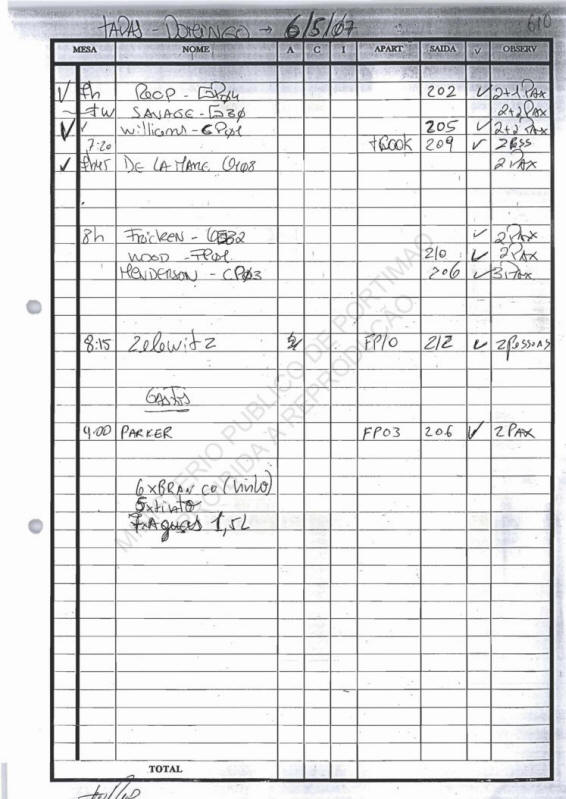 TAPAS - DOMINGO → 6/5/07 610
MESA NOME A C I APART SAIDA V OBSERV
7h 202 2+1 PAX
SAVAGE - 2+2 PAX
Williams - 205 2+2 PAX
7:20 209 2
DE LA MARE 2 PAX
8h 2 PAX
WOOD - FP01 210 2 PAX
HENDERSON - CP03 206 3 PAX
8:15 Zelewitz 2 FP10 212 2 pessoas
GASTOS
9.00 PARKER FP03 206 2 PAX
6 x BRANCO (Vinho)
5 x tinto
7 x Aguas 1,5L
TOTAL
MINISTÉRIO PUBLICO DE PORTIMAO
PROIBIDA A REPRODUÇÃO